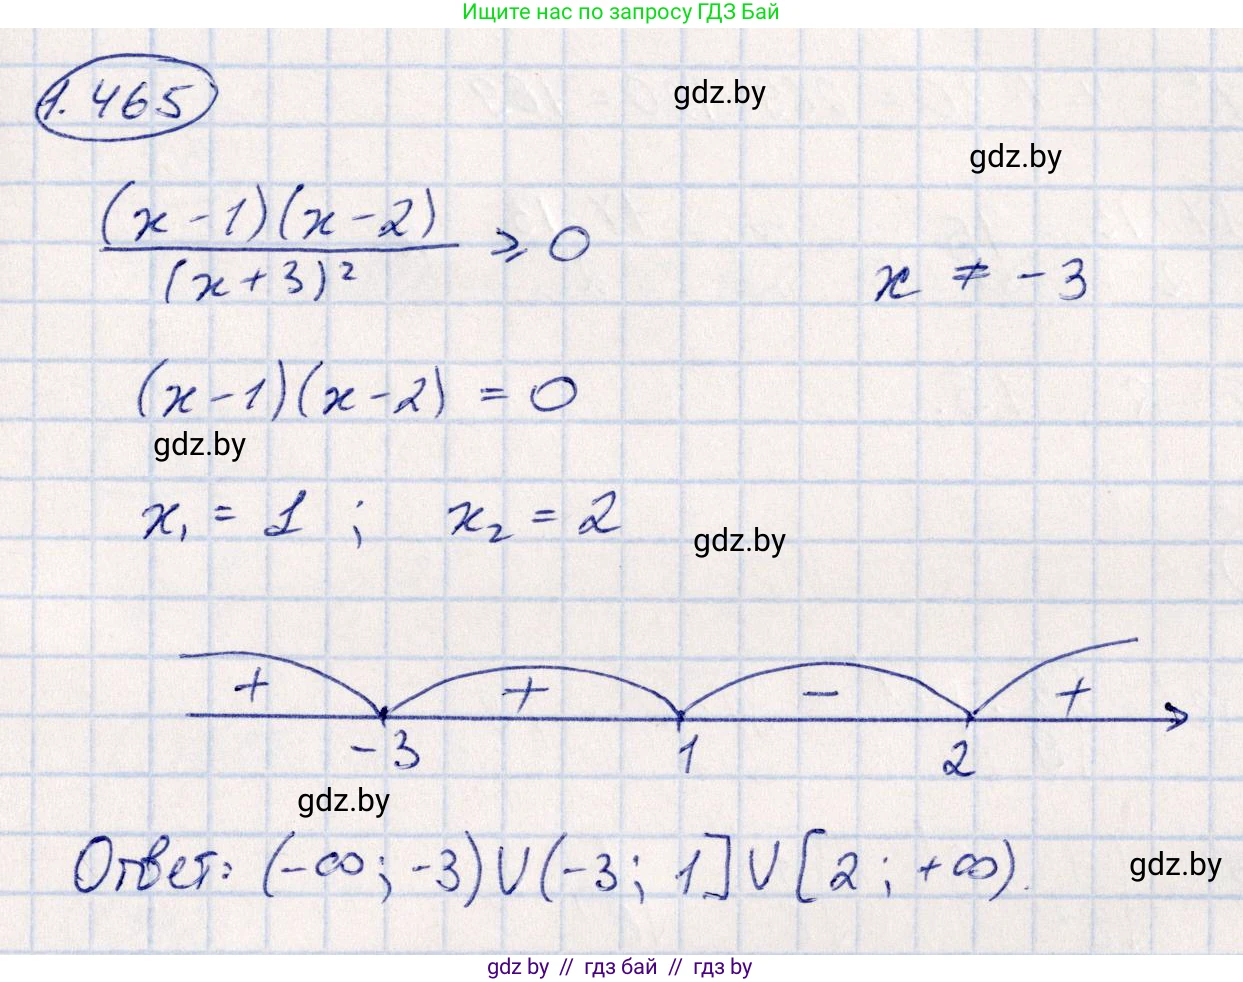 Ищите нас по запросу ГДЗ Бай
1.465
gdz.by
gdz.by
(x - 1)(x - 2)
(x + 3)²
⩾ 0
x ≠ - 3
(x - 1)(x - 2) = 0
gdz.by
x₁ = 1 ; x₂ = 2
gdz.by
+ + - +
- 3 1 2
gdz.by
Ответ: (-∞; -3) ∪ (-3; 1] ∪ [2; +∞).
gdz.by
gdz by // гдз бай // гдз by